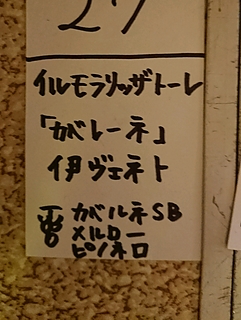 27
イルモラリッザトーレ
「ガレーネ」
伊ヴェネト
ガベルネSB
メルロー
ピノネロ